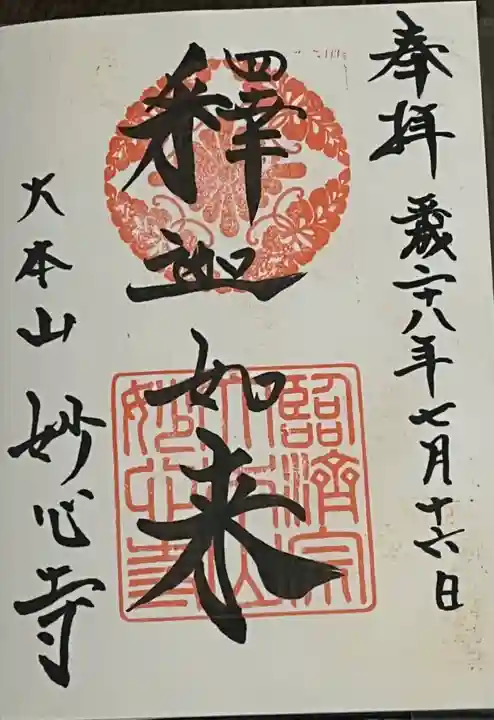 奉拝 平成二十八年七月十六日
釋迦如来
臨済宗
大本山
妙心寺
大本山 妙心寺